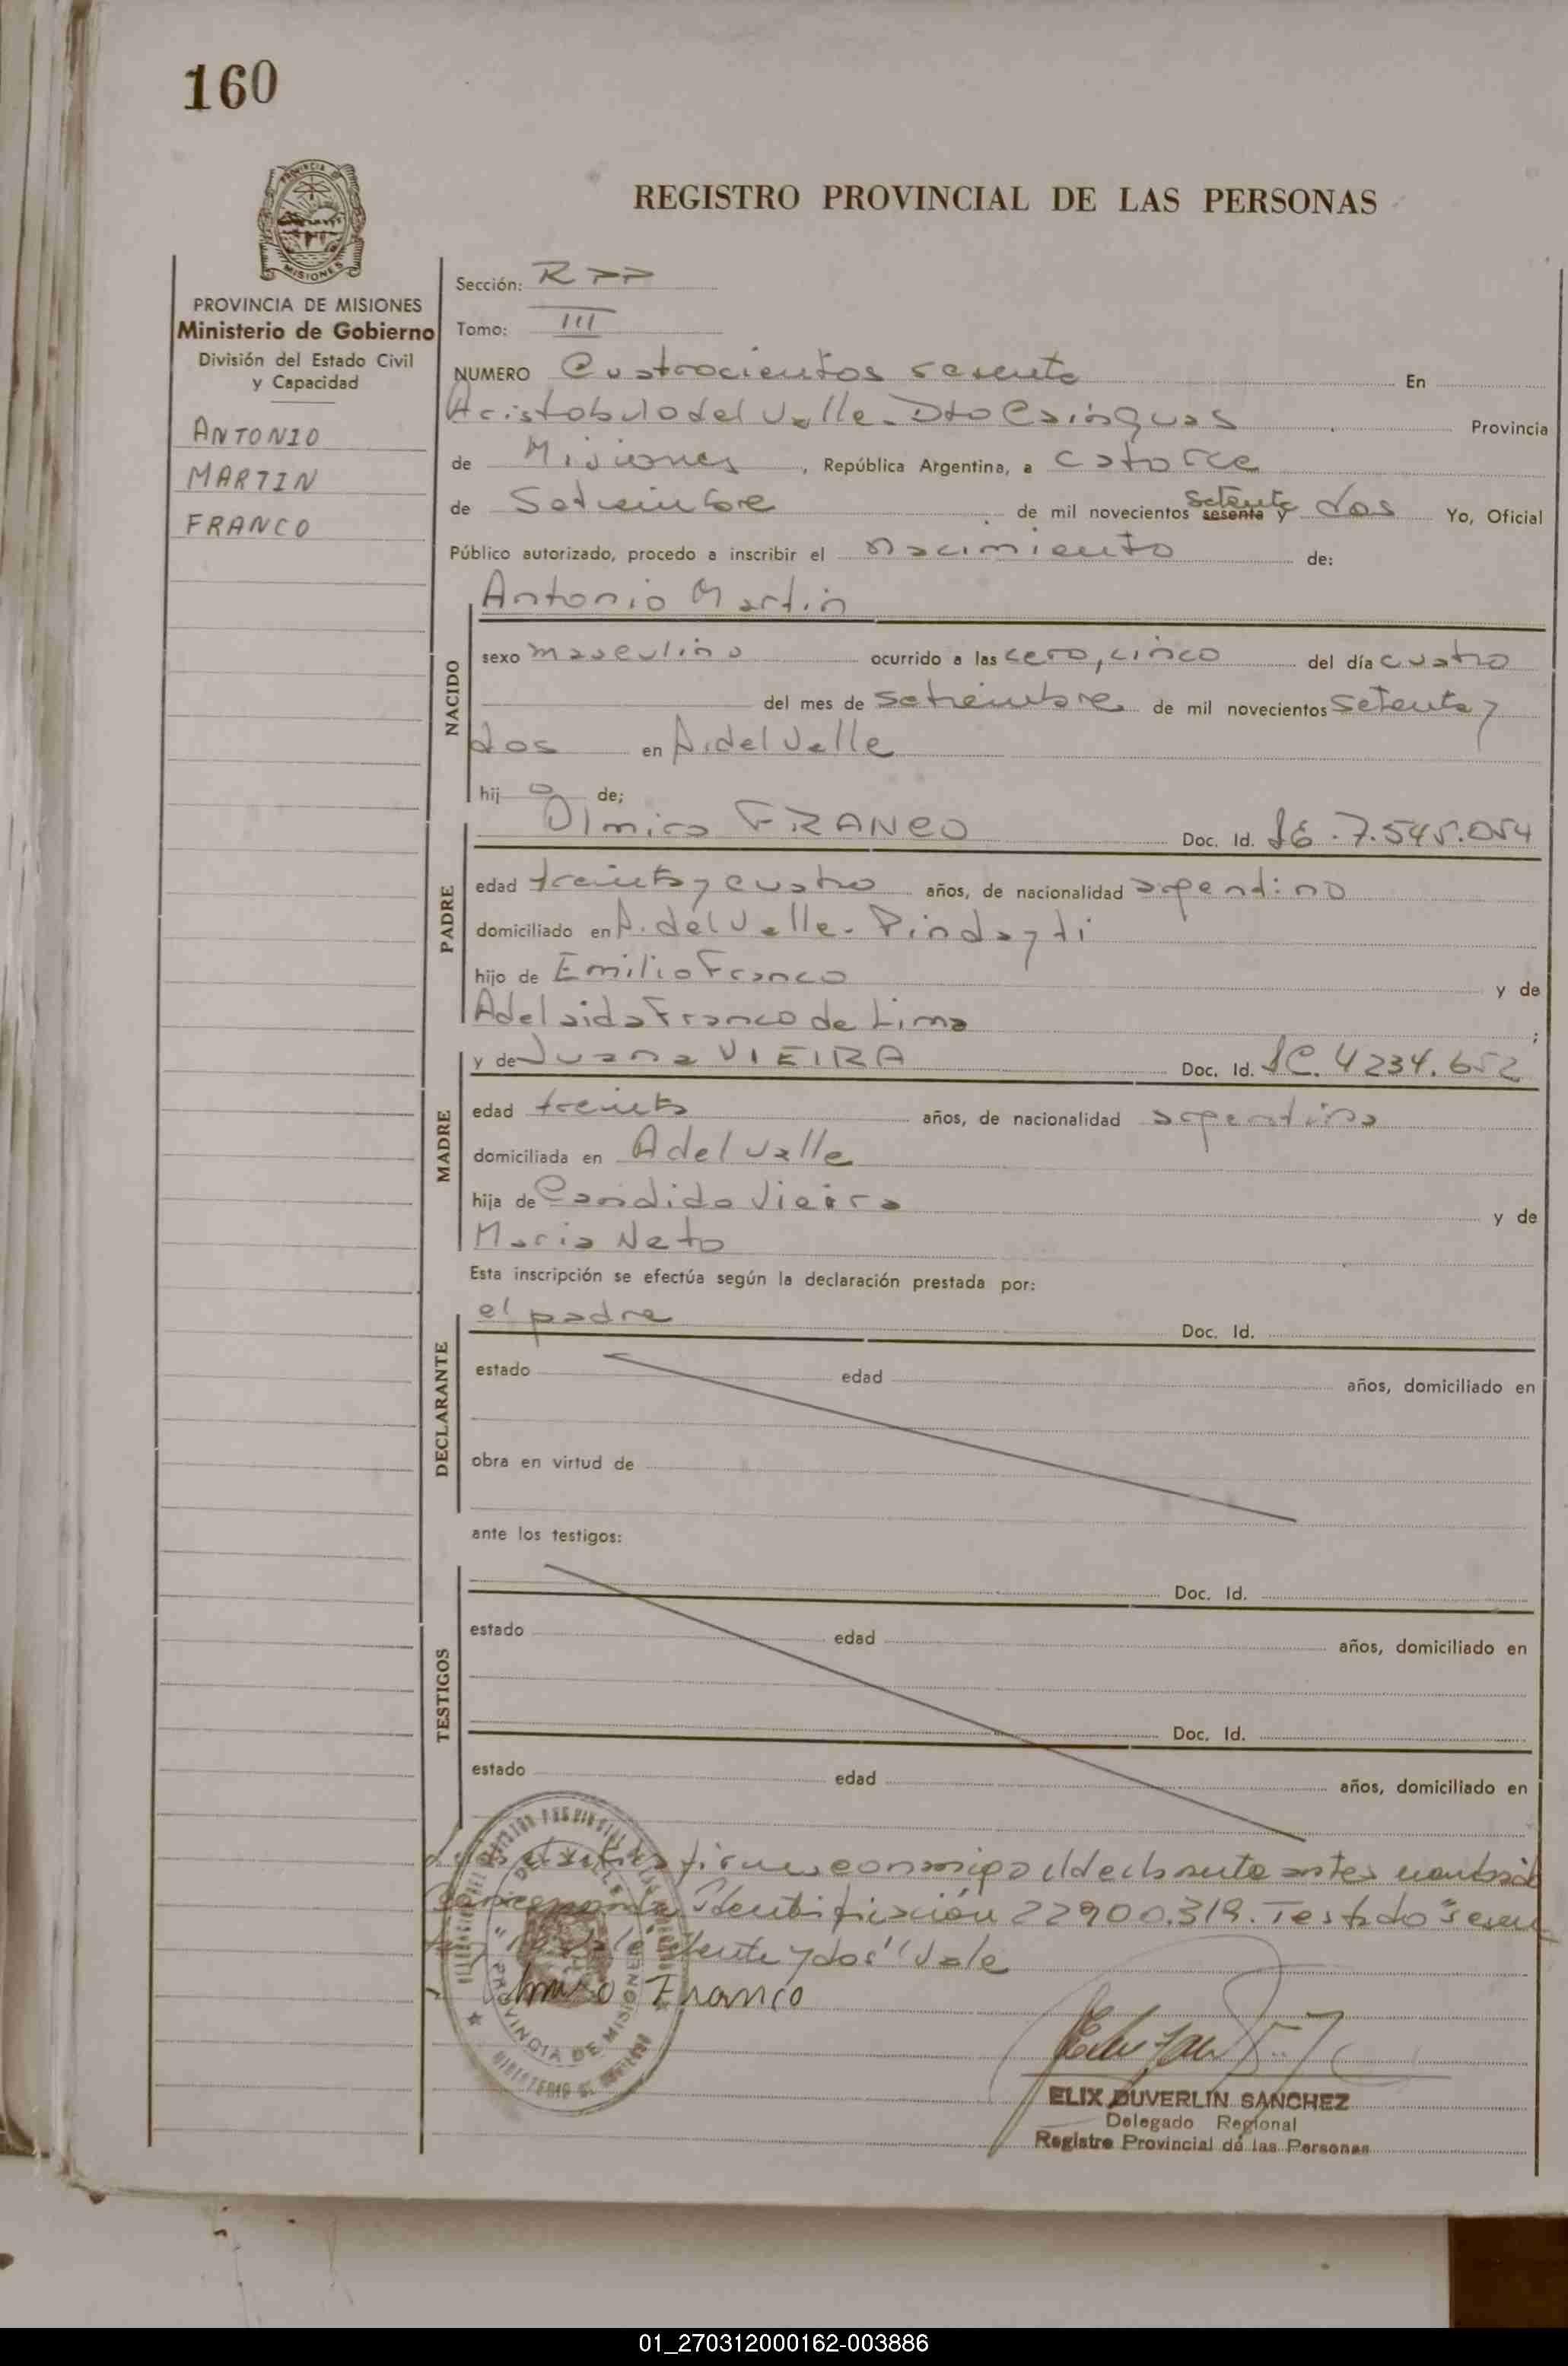 160
PROVINCIA
MISIONES
REGISTRO PROVINCIAL DE LAS PERSONAS
PROVINCIA DE MISIONES
Ministerio de Gobierno
División del Estado Civil
y Capacidad
ANTONIO
MARTIN
FRANCO
Sección: RPP
Tomo: III
NUMERO Cuatrocientos sesenta En
Aristobulo del Valle. Dto Cainguas Provincia
de Misiones, República Argentina, a catorce
de Setiembre de mil novecientos setenta sesenta y dos Yo, Oficial
Público autorizado, procedo a inscribir el nacimiento de:
Antonio Martin
NACIDO
sexo masculino ocurrido a las cero, cinco del día cuatro
del mes de setiembre de mil novecientos setenta y
dos en A. del Valle
hij o de;
PADRE
Olmiro FRANCO Doc. Id. LE. 7.545.054
edad treinta y cuatro años, de nacionalidad argentino
domiciliado en A. del Valle. Pindayti
hijo de Emilio Franco y de
Adelaida Franco de Lima ;
MADRE
y de Juana VIEIRA Doc. Id. LC. 4234.652
edad treinta años, de nacionalidad argentina
domiciliada en A del Valle
hija de Candido Vieira y de
Maria Neto
Esta inscripción se efectúa según la declaración prestada por:
DECLARANTE
el padre Doc. Id.
estado edad años, domiciliado en
obra en virtud de
ante los testigos:
TESTIGOS
Doc. Id.
estado edad años, domiciliado en
Doc. Id.
estado edad años, domiciliado en
firma conmigo el declarante antes
Identificación 22900.319. Testado "sesen
setenta y dos" Vale
Franco
PROVINCIA DE MISIONES
ELIX DUVERLIN SANCHEZ
Delegado Regional
Registro Provincial de las Personas
01_270312000162-003886